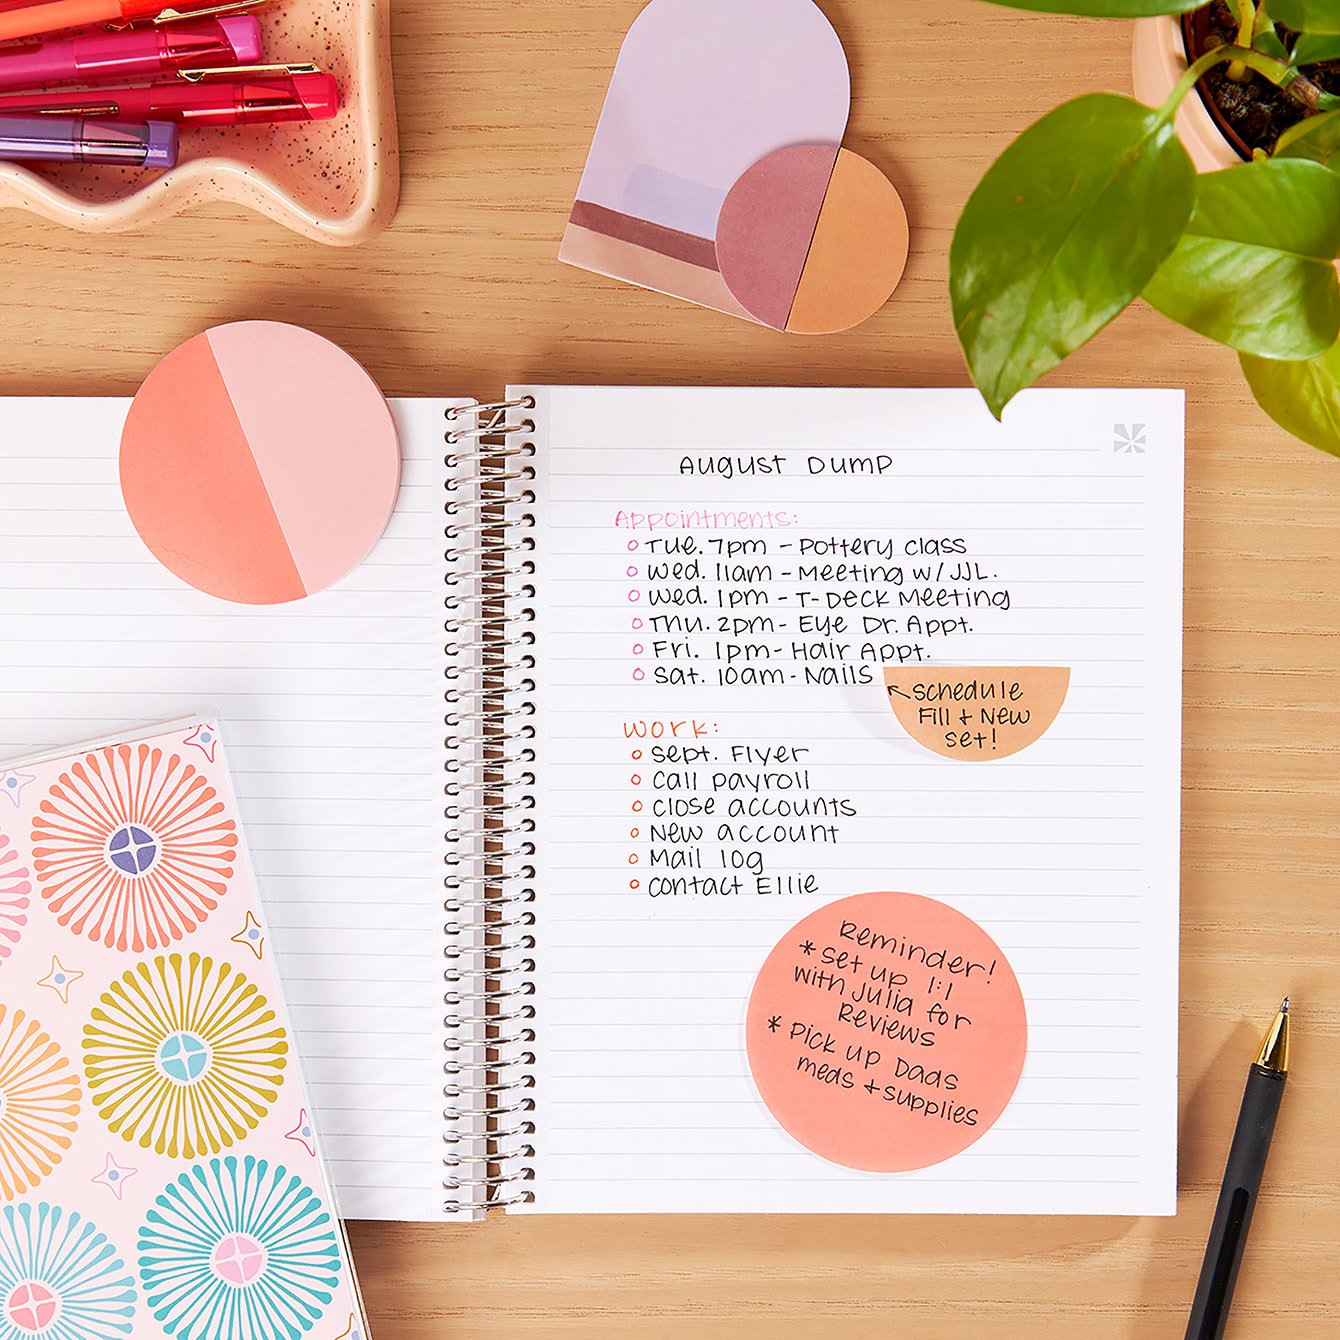 August Dump
Appointments:
Tue. 7pm - Pottery class
Wed. 11am - Meeting w/ JJL.
Wed. 1pm - T-Deck Meeting
Thu. 2pm - Eye Dr. Appt.
Fri. 1pm - Hair Appt.
Sat. 10am - Nails
Schedule
Fill + New
set!
Work:
Sept. Flyer
Call payroll
Close accounts
New account
Mail log
Contact Ellie
Reminder!
* Set up 1:1
with Julia for
Reviews
* Pick up Dads
meds + supplies